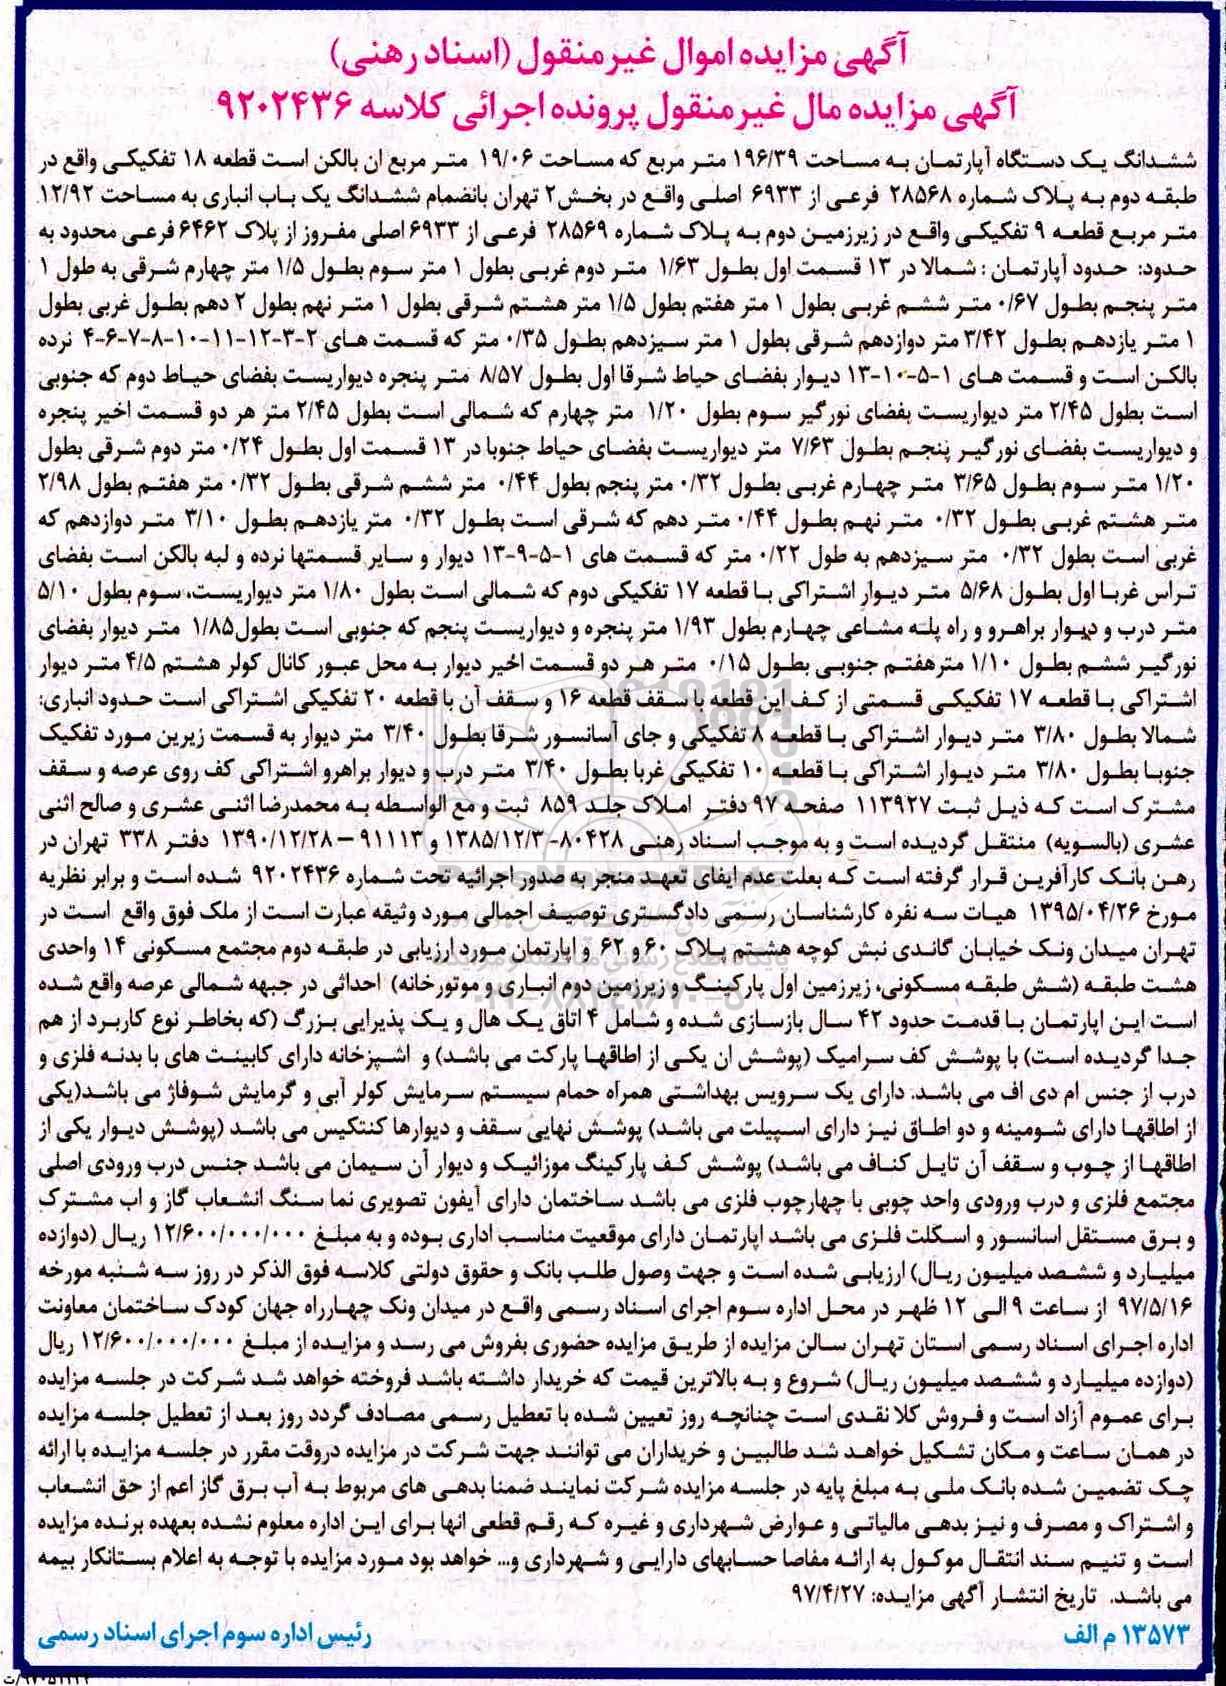 آگهی مزایده اموال غیرمنقول (اسناد رهنی)
آگهی مزایده مال غیرمنقول پرونده اجرائی کلاسه ۹۲۰۲۴۳۶
ششدانگ یک دستگاه آپارتمان به مساحت ۱۹۶/۳۹ متر مربع که مساحت ۱۹/۰۶ متر مربع ان بالکن است قطعه ۱۸ تفکیکی واقع در
طبقه دوم به پلاک شماره ۲۸۵۶۸ فرعی از ۶۹۳۳ اصلی واقع در بخش ۲ تهران بانضمام ششدانگ یک باب انباری به مساحت ۱۲/۹۲
متر مربع قطعه ۹ تفکیکی واقع در زیرزمین دوم به پلاک شماره ۲۸۵۶۹ فرعی از ۶۹۳۳ اصلی مفروز از پلاک ۶۴۶۲ فرعی محدود به
حدود: حدود آپارتمان : شمالا در ۱۳ قسمت اول بطول ۱/۶۳ متر دوم غربی بطول ۱ متر سوم بطول ۱/۵ متر چهارم شرقی به طول ۱
متر پنجم بطول ۰/۶۷ متر ششم غربی بطول ۱ متر هفتم بطول ۱/۵ متر هشتم شرقی بطول ۱ متر نهم بطول ۲ دهم بطول غربی بطول
۱ متر یازدهم بطول ۳/۴۲ متر دوازدهم شرقی بطول ۱ متر سیزدهم بطول ۰/۳۵ متر که قسمت های ۲-۳-۱۲-۱۱-۱۰-۸-۷-۶-۴ نرده
بالکن است و قسمت های ۱-۵-۱۰-۱۳ دیوار بفضای حیاط شرقا اول بطول ۸/۵۷ متر پنجره دیواریست بفضای حیاط دوم که جنوبی
است بطول ۲/۴۵ متر دیواریست بفضای نورگیر سوم بطول ۱/۲۰ متر چهارم که شمالی است بطول ۲/۴۵ متر هر دو قسمت اخیر پنجره
و دیواریست بفضای نورگیر پنجم بطول ۷/۶۳ متر دیواریست بفضای حیاط جنوبا در ۱۳ قسمت اول بطول ۰/۲۴ متر دوم شرقی بطول
۱/۲۰ متر سوم بطول ۳/۶۵ متر چهارم غربی بطول ۰/۳۲ متر پنجم بطول ۰/۴۴ متر ششم شرقی بطول ۰/۳۲ متر هفتم بطول ۲/۹۸
متر هشتم غربی بطول ۰/۳۲ متر نهم بطول ۰/۴۴ متر دهم که شرقی است بطول ۰/۳۲ متر یازدهم بطول ۳/۱۰ متر دوازدهم که
غربی است بطول ۰/۳۲ متر سیزدهم به طول ۰/۲۲ متر که قسمت های ۱-۵-۹-۱۳ دیوار و سایر قسمتها نرده و لبه بالکن است بفضای
تراس غربا اول بطول ۵/۶۸ متر دیوار اشتراکی با قطعه ۱۷ تفکیکی دوم که شمالی است بطول ۱/۸۰ متر دیواریست، سوم بطول ۵/۱۰
متر درب و دیوار براهرو و راه پله مشاعی چهارم بطول ۱/۹۳ متر پنجره و دیواریست پنجم که جنوبی است بطول ۱/۸۵ متر دیوار بفضای
نورگیر ششم بطول ۱/۱۰ متر هفتم جنوبی بطول ۰/۱۵ متر هر دو قسمت اخیر دیوار به محل عبور کانال کولر هشتم ۴/۵ متر دیوار
اشتراکی با قطعه ۱۷ تفکیکی قسمتی از کف این قطعه با سقف قطعه ۱۶ و سقف آن با قطعه ۲۰ تفکیکی اشتراکی است حدود انباری:
شمالا بطول ۳/۸۰ متر دیوار اشتراکی با قطعه ۸ تفکیکی و جای آسانسور شرقا بطول ۳/۴۰ متر دیوار به قسمت زیرین مورد تفکیک
جنوبا بطول ۳/۸۰ متر دیوار اشتراکی با قطعه ۱۰ تفکیکی غربا بطول ۳/۴۰ متر درب و دیوار براهرو اشتراکی کف روی عرصه و سقف
مشترک است که ذیل ثبت ۱۱۳۹۲۷ صفحه ۹۷ دفتر املاک جلد ۸۵۹ ثبت و مع الواسطه به محمدرضا اثنی عشری و صالح اثنی
عشری (بالسویه) منتقل گردیده است و به موجب اسناد رهنی ۸۰۴۲۸-۱۳۸۵/۱۲/۳ و ۹۱۱۱۳ – ۱۳۹۰/۱۲/۲۸ دفتر ۳۳۸ تهران در
رهن بانک کارآفرین قرار گرفته است که بعلت عدم ایفای تعهد منجر به صدور اجرائیه تحت شماره ۹۲۰۲۴۳۶ شده است و برابر نظریه
مورخ ۱۳۹۵/۰۴/۲۶ هیات سه نفره کارشناسان رسمی دادگستری توصیف اجمالی مورد وثیقه عبارت است از ملک فوق واقع است در
تهران میدان ونک خیابان گاندی نبش کوچه هشتم پلاک ۶۰ و ۶۲ و اپارتمان مورد ارزیابی در طبقه دوم مجتمع مسکونی ۱۴ واحدی
هشت طبقه (شش طبقه مسکونی، زیرزمین اول پارکینگ و زیرزمین دوم انباری و موتورخانه) احداثی در جبهه شمالی عرصه واقع شده
است این اپارتمان با قدمت حدود ۴۲ سال بازسازی شده و شامل ۴ اتاق یک هال و یک پذیرایی بزرگ (که بخاطر نوع کاربرد از هم
جدا گردیده است) با پوشش کف سرامیک (پوشش ان یکی از اطاقها پارکت می باشد) و اشپزخانه دارای کابینت های با بدنه فلزی و
درب از جنس ام دی اف می باشد. دارای یک سرویس بهداشتی همراه حمام سیستم سرمایش کولر آبی و گرمایش شوفاژ می باشد(یکی
از اطاقها دارای شومینه و دو اطاق نیز دارای اسپیلت می باشد) پوشش نهایی سقف و دیوارها کنتکیس می باشد (پوشش دیوار یکی از
اطاقها از چوب و سقف آن تایل کناف می باشد) پوشش کف پارکینگ موزائیک و دیوار آن سیمان می باشد جنس درب ورودی اصلی
مجتمع فلزی و درب ورودی واحد چوبی با چهارچوب فلزی می باشد ساختمان دارای آیفون تصویری نما سنگ انشعاب گاز و اب مشترک
و برق مستقل اسانسور و اسکلت فلزی می باشد اپارتمان دارای موقعیت مناسب اداری بوده و به مبلغ ۱۲/۶۰۰/۰۰۰/۰۰۰ ریال (دوازده
میلیارد و ششصد میلیون ریال) ارزیابی شده است و جهت وصول طلب بانک و حقوق دولتی کلاسه فوق الذکر در روز سه شنبه مورخه
۹۷/۵/۱۶ از ساعت ۹ الی ۱۲ ظهر در محل اداره سوم اجرای اسناد رسمی واقع در میدان ونک چهارراه جهان کودک ساختمان معاونت
اداره اجرای اسناد رسمی استان تهران سالن مزایده از طریق مزایده حضوری بفروش می رسد و مزایده از مبلغ ۱۲/۶۰۰/۰۰۰/۰۰۰ ریال
(دوازده میلیارد و ششصد میلیون ریال) شروع و به بالاترین قیمت که خریدار داشته باشد فروخته خواهد شد شرکت در جلسه مزایده
برای عموم آزاد است و فروش کلا نقدی است چنانچه روز تعیین شده با تعطیل رسمی مصادف گردد روز بعد از تعطیل جلسه مزایده
در همان ساعت و مکان تشکیل خواهد شد طالبین و خریداران می توانند جهت شرکت در مزایده دروقت مقرر در جلسه مزایده با ارائه
چک تضمین شده بانک ملی به مبلغ پایه در جلسه مزایده شرکت نمایند ضمنا بدهی های مربوط به آب برق گاز اعم از حق انشعاب
و اشتراک و مصرف و نیز بدهی مالیاتی و عوارض شهرداری و غیره که رقم قطعی انها برای این اداره معلوم نشده بعهده برنده مزایده
است و تنیم سند انتقال موکول به ارائه مفاصا حسابهای دارایی و شهرداری و... خواهد بود مورد مزایده با توجه به اعلام بستانکار بیمه
می باشد. تاریخ انتشار آگهی مزایده: ۹۷/۴/۲۷
۱۳۵۷۳ م الف
رئیس اداره سوم اجرای اسناد رسمی